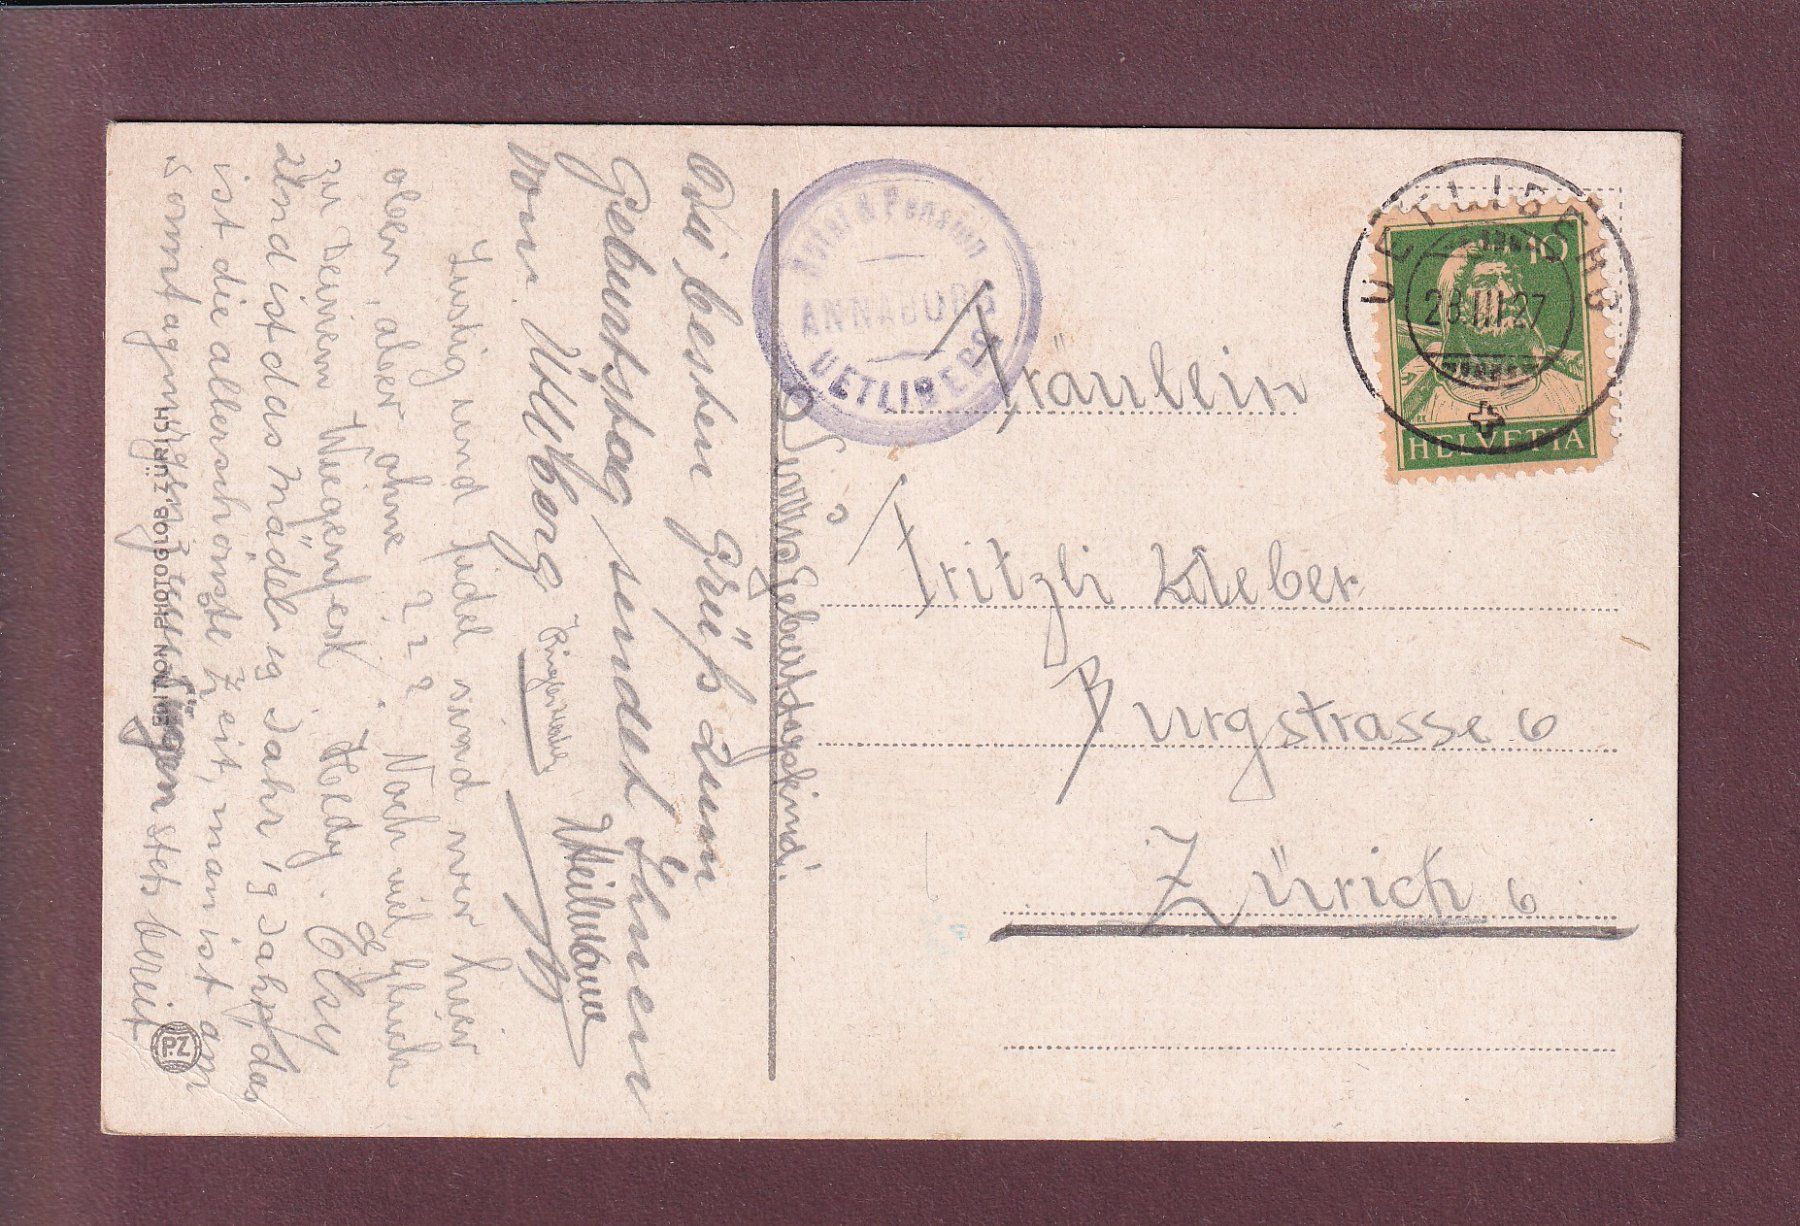 Die besten Grüsse zum
Geburtstag sendet Ihnen
vom Ütliberg
Ringier
W Heilmann
Lustig und fidel sind wir hier
oben, aber ohne ? ? ? Noch viel Glück
zu Deinem Wiegenfest. Heldy. Elsy
Und ist das Mädeli 19 Jahr, 19 Jahr, das
ist die allerschönste Zeit, man ist am
stets bereit
Geburtstagskind!
Hotel & Pension
ANNABURG
UETLIBERG
UETLIBERG
28.III.27
10
HELVETIA
Fräulein
Fritzli Kleber
Burgstrasse 6
Zürich 6
EDITION PHOTOGLOB ZÜRICH
P.Z